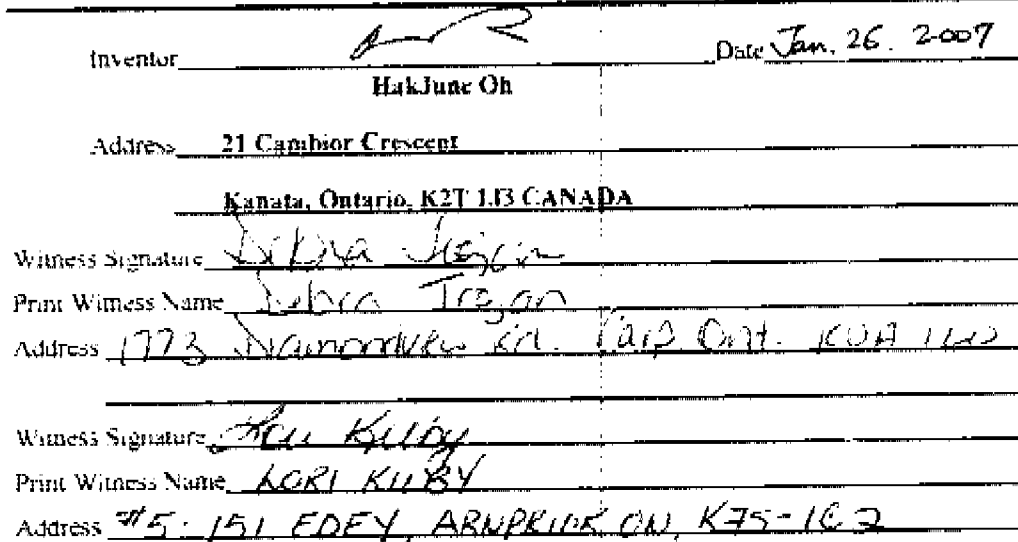 Inventor Date Jan. 26. 2007
HakJune Oh
Address 21 Cambior Crescent
Kanata, Ontario, K2T 1J3 CANADA
Witness Signature Debra
Print Witness Name Debra
Address 1773 Rd. Carp Ont. K0A 1L0
Witness Signature Lori Kilby
Print Witness Name LORI KILBY
Address #5-151 EDEY, ARNPRIOR ON, K7S-1C2